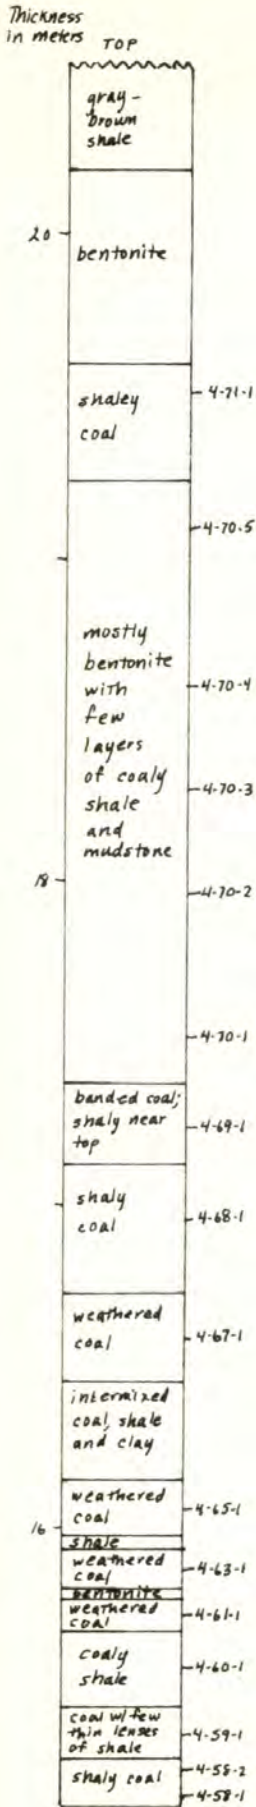 Thickness
in meters
TOP
gray-
brown
shale
20
bentonite
shaley
coal
4-71-1
4-70-5
mostly
bentonite
with
few
layers
of coaly
shale
and
mudstone
4-70-4
4-70-3
18
4-70-2
4-70-1
banded coal;
shaly near
top
4-69-1
shaly
coal
4-68-1
weathered
coal
4-67-1
intermixed
coal, shale
and clay
weathered
coal
4-65-1
16
shale
weathered
coal
4-63-1
bentonite
weathered
coal
4-61-1
coaly
shale
4-60-1
coal w/few
thin lenses
of shale
4-59-1
shaly coal
4-58-2
4-58-1